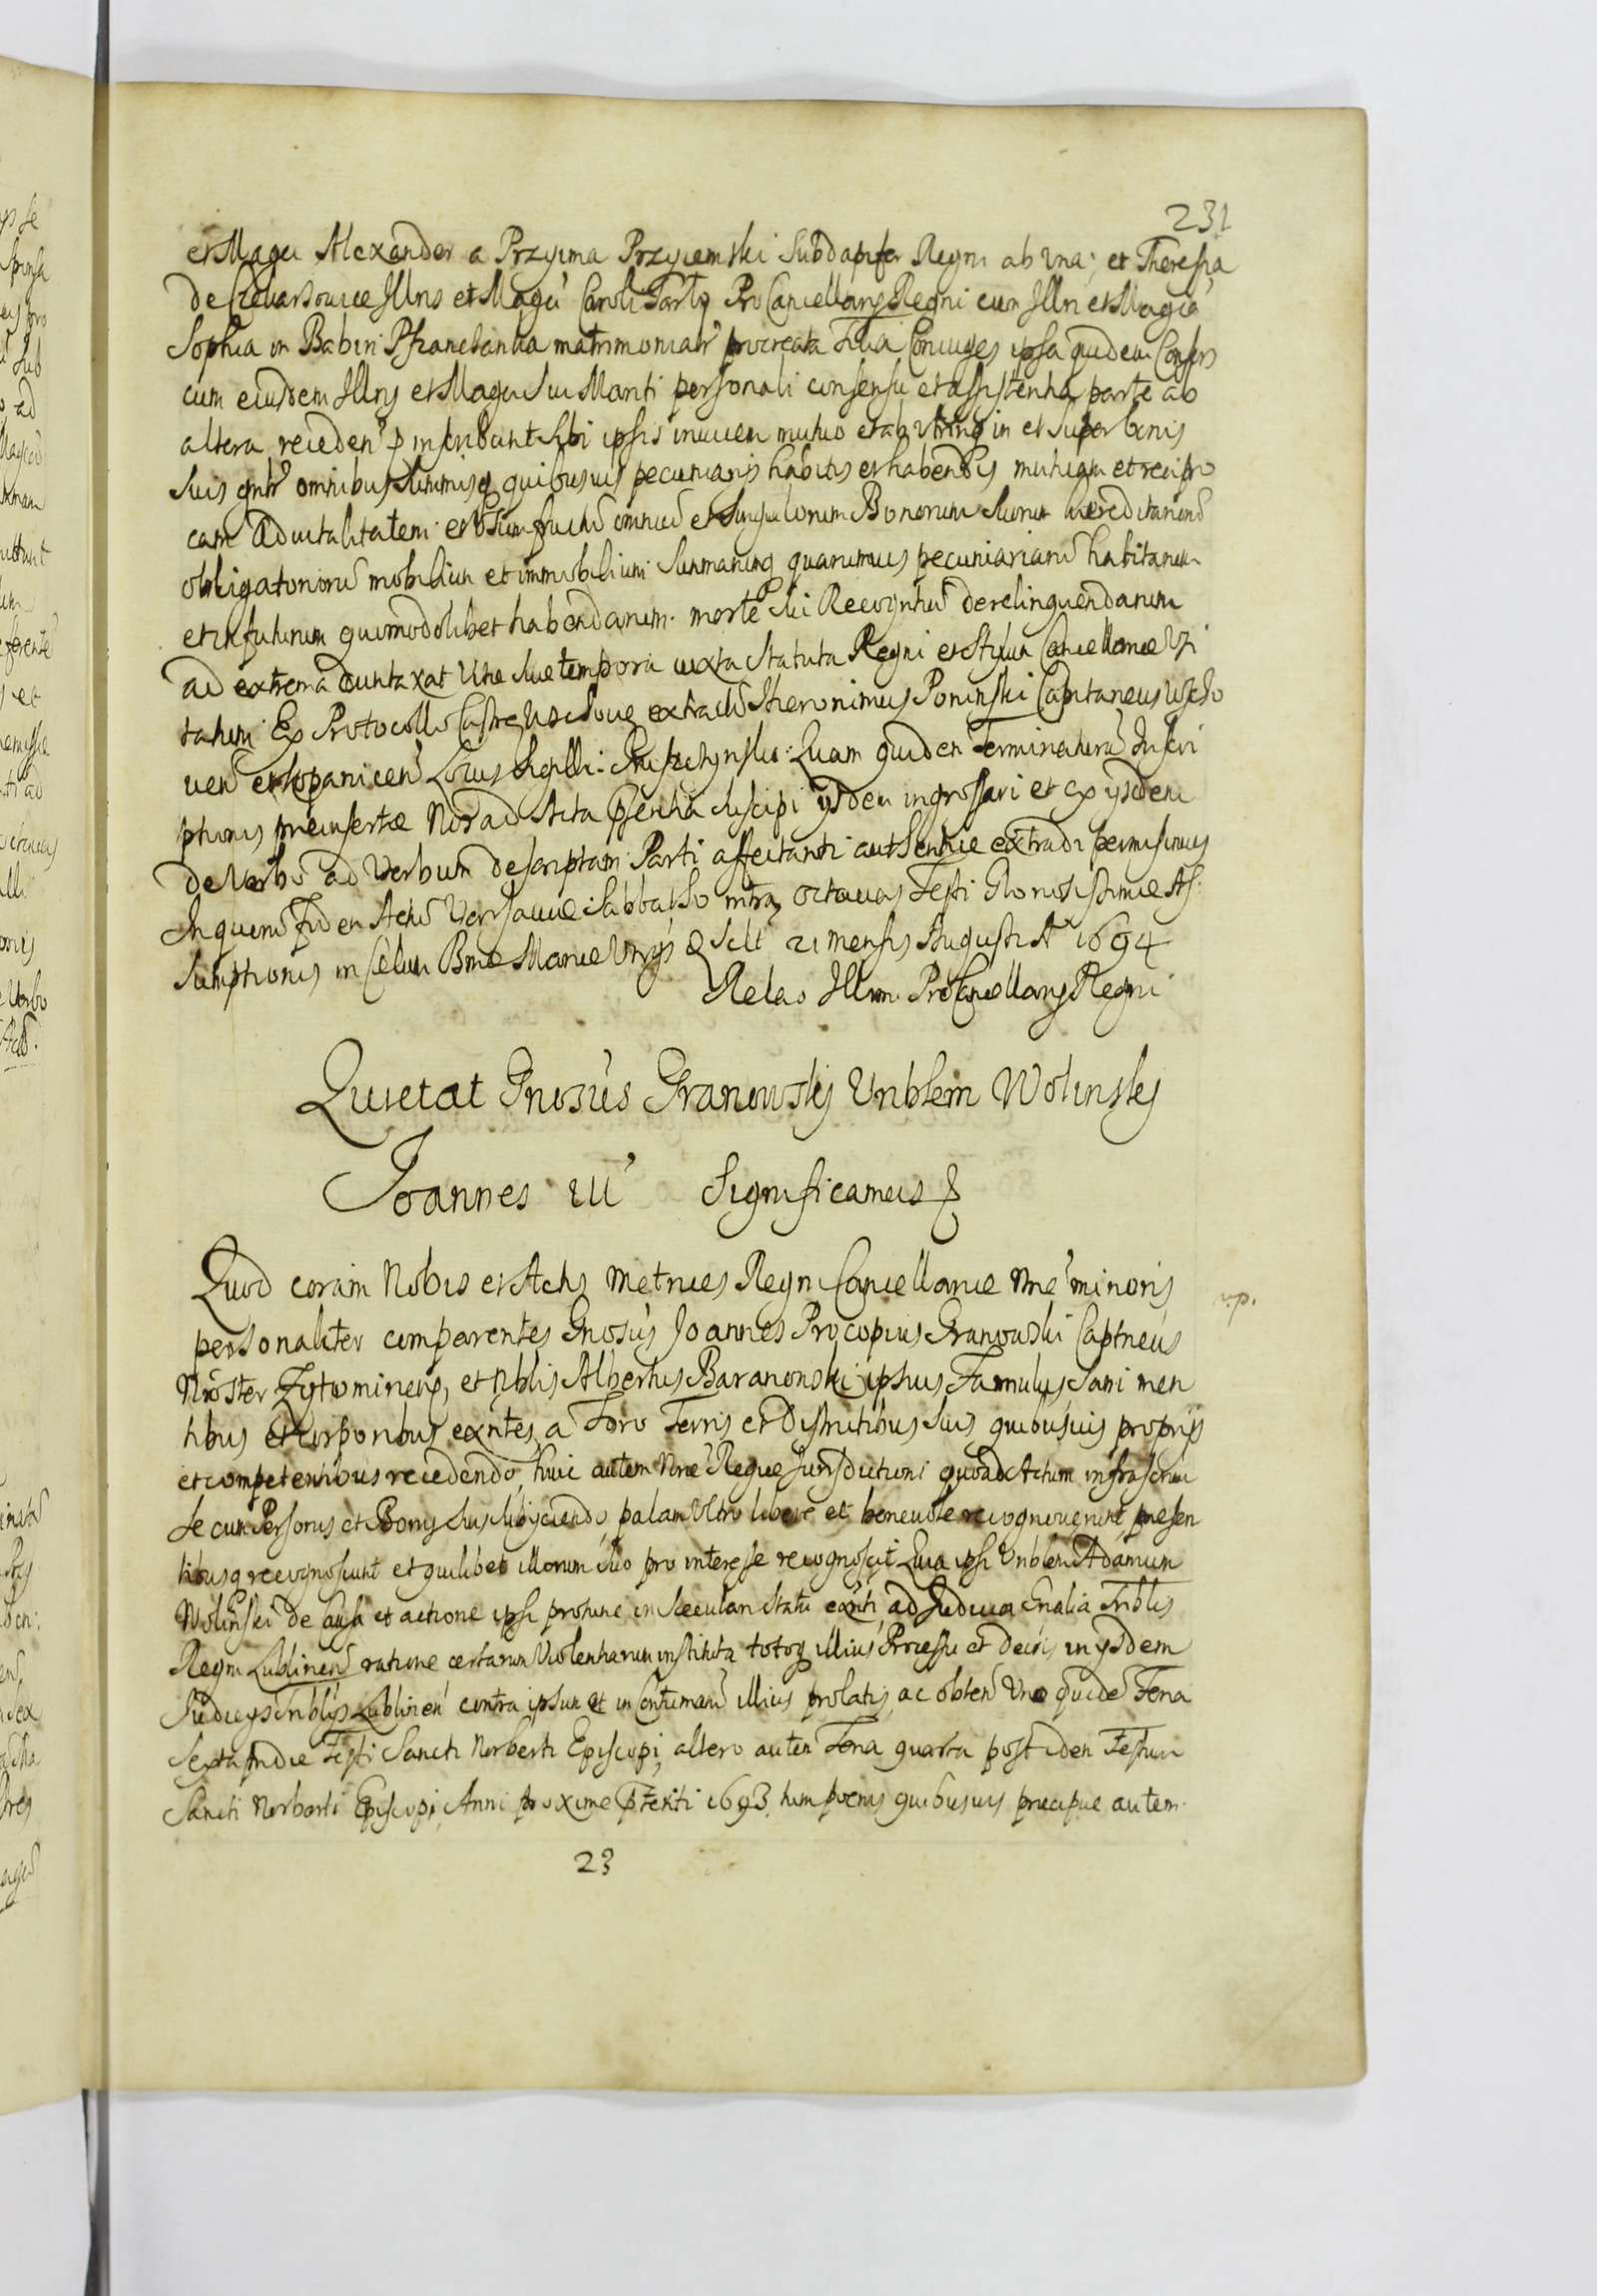 231
et Magcus Alexander a Przyima Przyiemski Subdapifer Regni ab una, et Theresia
de Czekarzowice Illris et Magci Caroli Tarło ProCancellarij Regni cum Illri et Magca
Sophia in Babin Pszonczanka matrimonialr procreata Filia Coniuges ipsa quidem Consors
cum eiusdem Illris et Magci sui Mariti personali consensu et assistentia parte ab
altera recedens inscribunt sibi ipsis invicem mutuo et ab utrinq in et super bonis
suis gntr omnibus summisq quibusvis pecuniarijs habitis et habendis mutuam et recipro
cam Advitalitatem et Usumfructu omniu et singulorum Bonorum suorum hereditarioru
obligatorioru mobilium et immobilium summarumq quarumvis pecuniariaru habitarum
et in futurum quomodolibet habendarum morte sui Recogntiu derelinquendarum
ad extrema duntaxat Vitae suae tempora iuxta Statuta Regni et Stylum Cancellariae Vsi
tatum Ex Protocollo Castri extractu Hieronimus Poninski Capitaneus
Locus Sigilli: Quam quidem Terminatura Inscri
ptionis preinsertae Nos ad Acta pñtia suscipi ijsdem ingrossari et ex ijsdem
de Verbo ad Verbum descriptam Parti affectanti authentice extradi permisimus
In quoru fidem Actu Varsaviae Sabbatho intra octavas Festi Gloriosissimae As
sumptionis in Caelum Bmae Mariae Vrgis & Sclt 21 mensis Augusti A 1694
Relao Illrm ProCancellarij Regni
Quietat Gnosus Granowskj Vnblem Wolinskj
Joannes III Significamus &
Quod coram Nobis et Actis Metrices Regni Cancellariae nrae minoris
v.p.
personaliter comparentes Gnosus Joannes Procopius Granowski Captneus
Noster Zytomirens, et Nblis Albertus Baranowski ipsius Famulus, sani men
tibus et corporibus exntes, a Foro Terris et Districtibus suis quibusvis proprijs
et competentibus recedendo, huic autem Nrae Regiae Jurisdictioni quoad Actum infrascrm
se cum Personis et Bonis suis subijciendo, palam Ultro libere et benevole recognoverunt presen
tibusq recognoscunt et quilibet illorum suo pro interesse recognoscit Quia ipsi Vnblem Adamum
Wolinski de causa et actione ipsi protunc in Saeculari Statu exnti, ad Judicia Gnalia Triblis
Regni Lublinens ratione certarum Violentiarum instituta totoq illius Processu et Decrs in ijsdem
Judicijs Triblijs Lublinen contra ipsum et in Contumam illius prolatis, ac obten Uno quide Feria
Sexta pridie Festi Sancti Norberti Episcopi, altero autem Feria quarta post idem Festum
Sancti Norberti Episcopi, Anni proxime pteriti 1693, tum poenis quibusvis precipue autem
23